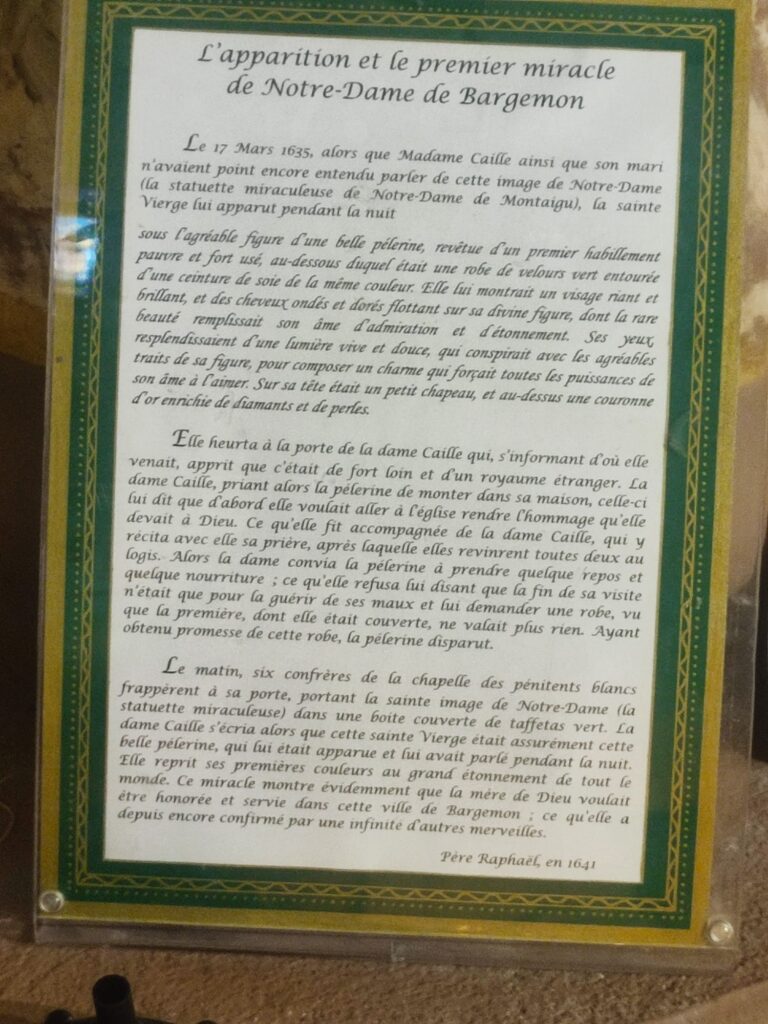 L'apparition et le premier miracle
de Notre-Dame de Bargemon
Le 17 Mars 1635, alors que Madame Caille ainsi que son mari
n'avaient point encore entendu parler de cette image de Notre-Dame
(la statuette miraculeuse de Notre-Dame de Montaigu), la sainte
Vierge lui apparut pendant la nuit
sous l'agréable figure d'une belle pélerine, revêtue d'un premier habillement
pauvre et fort usé, au-dessous duquel était une robe de velours vert entourée
d'une ceinture de soie de la même couleur. Elle lui montrait un visage riant et
brillant, et des cheveux ondés et dorés flottant sur sa divine figure, dont la rare
beauté remplissait son âme d'admiration et d'étonnement. Ses yeux,
resplendissaient d'une lumière vive et douce, qui conspirait avec les agréables
traits de sa figure, pour composer un charme qui forçait toutes les puissances de
son âme à l'aimer. Sur sa tête était un petit chapeau, et au-dessus une couronne
d'or enrichie de diamants et de perles.
Elle heurta à la porte de la dame Caille qui, s'informant d'où elle
venait, apprit que c'était de fort loin et d'un royaume étranger. La
dame Caille, priant alors la pélerine de monter dans sa maison, celle-ci
lui dit que d'abord elle voulait aller à l'église rendre l'hommage qu'elle
devait à Dieu. Ce qu'elle fit accompagnée de la dame Caille, qui y
récita avec elle sa prière, après laquelle elles revinrent toutes deux au
logis. Alors la dame convia la pélerine à prendre quelque repos et
quelque nourriture ; ce qu'elle refusa lui disant que la fin de sa visite
n'était que pour la guérir de ses maux et lui demander une robe, vu
que la première, dont elle était couverte, ne valait plus rien. Ayant
obtenu promesse de cette robe, la pélerine disparut.
Le matin, six confrères de la chapelle des pénitents blancs
frappèrent à sa porte, portant la sainte image de Notre-Dame (la
statuette miraculeuse) dans une boite couverte de taffetas vert. La
dame Caille s'écria alors que cette sainte Vierge était assurément cette
belle pélerine, qui lui était apparue et lui avait parlé pendant la nuit.
Elle reprit ses premières couleurs au grand étonnement de tout le
monde. Ce miracle montre évidemment que la mère de Dieu voulait
être honorée et servie dans cette ville de Bargemon ; ce qu'elle a
depuis encore confirmé par une infinité d'autres merveilles.
Père Raphaël, en 1641